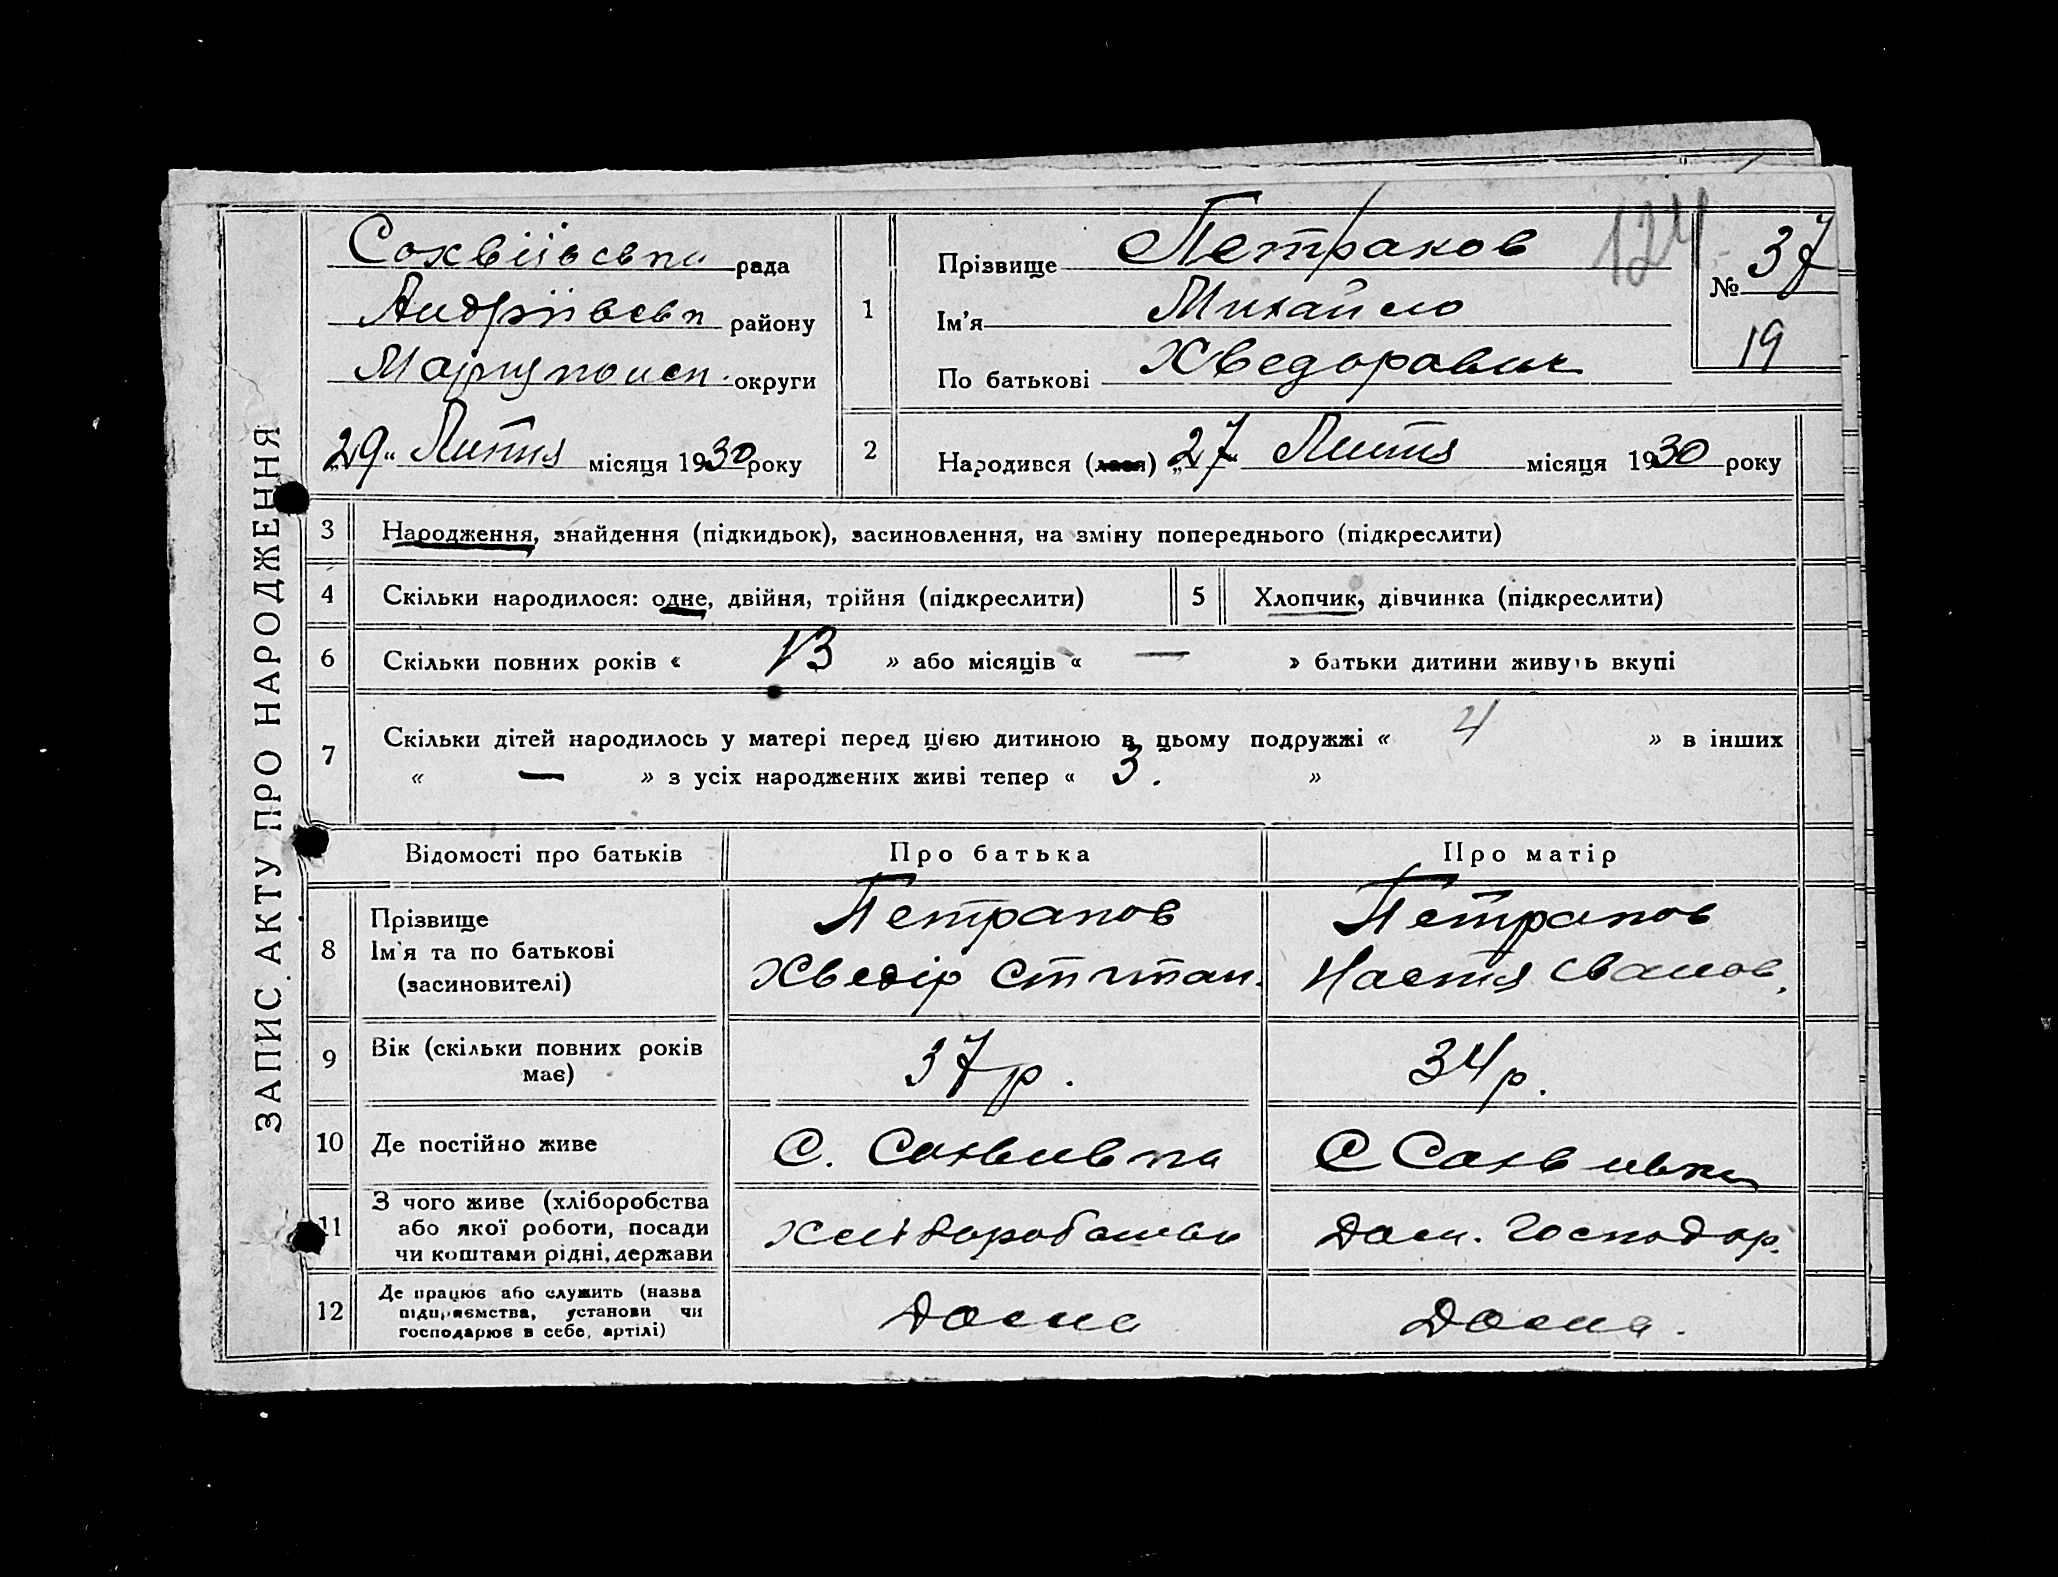 ЗАПИС АКТУ ПРО НАРОДЖЕННЯ
Сохвіївська рада
Андріївськ району
Маріупольськ. округи
„29“ Лютня місяця 1930 року
1
Прізвище Петраков
Ім'я Михайло
По батькові Хведорович
124
№ 37
19
2 Народився (лася) „27“ Лютня місяця 1930 року
3 Народження, знайдення (підкидьок), засиновлення, на зміну попереднього (підкреслити)
4 Скільки народилося: одне, двійня, трійня (підкреслити) 5 Хлопчик, дівчинка (підкреслити)
6 Скільки повних років « 13 » або місяців « — » батьки дитини живуть вкупі
7 Скільки дітей народилось у матері перед цією дитиною в цьому подружжі « 4 » в інших
« — » з усіх народжених живі тепер « 3. »
Відомості про батьків Про батька Про матір
8 Прізвище
Ім'я та по батькові
(засиновителі)
Петраков
Хведір
Петраков
Настя Іванов.
9 Вік (скільки повних років
має)
37 р.
34 р.
10 Де постійно живе С. Сохвиївка С Сохвиївка
11 З чого живе (хліборобства
або якої роботи, посади
чи коштами рідні, держави
Хліборобством
Дом. Господар.
12 Де працює або служить (назва
підприємства, установи чи
господарює в себе, артілі)
Дома
Дома.